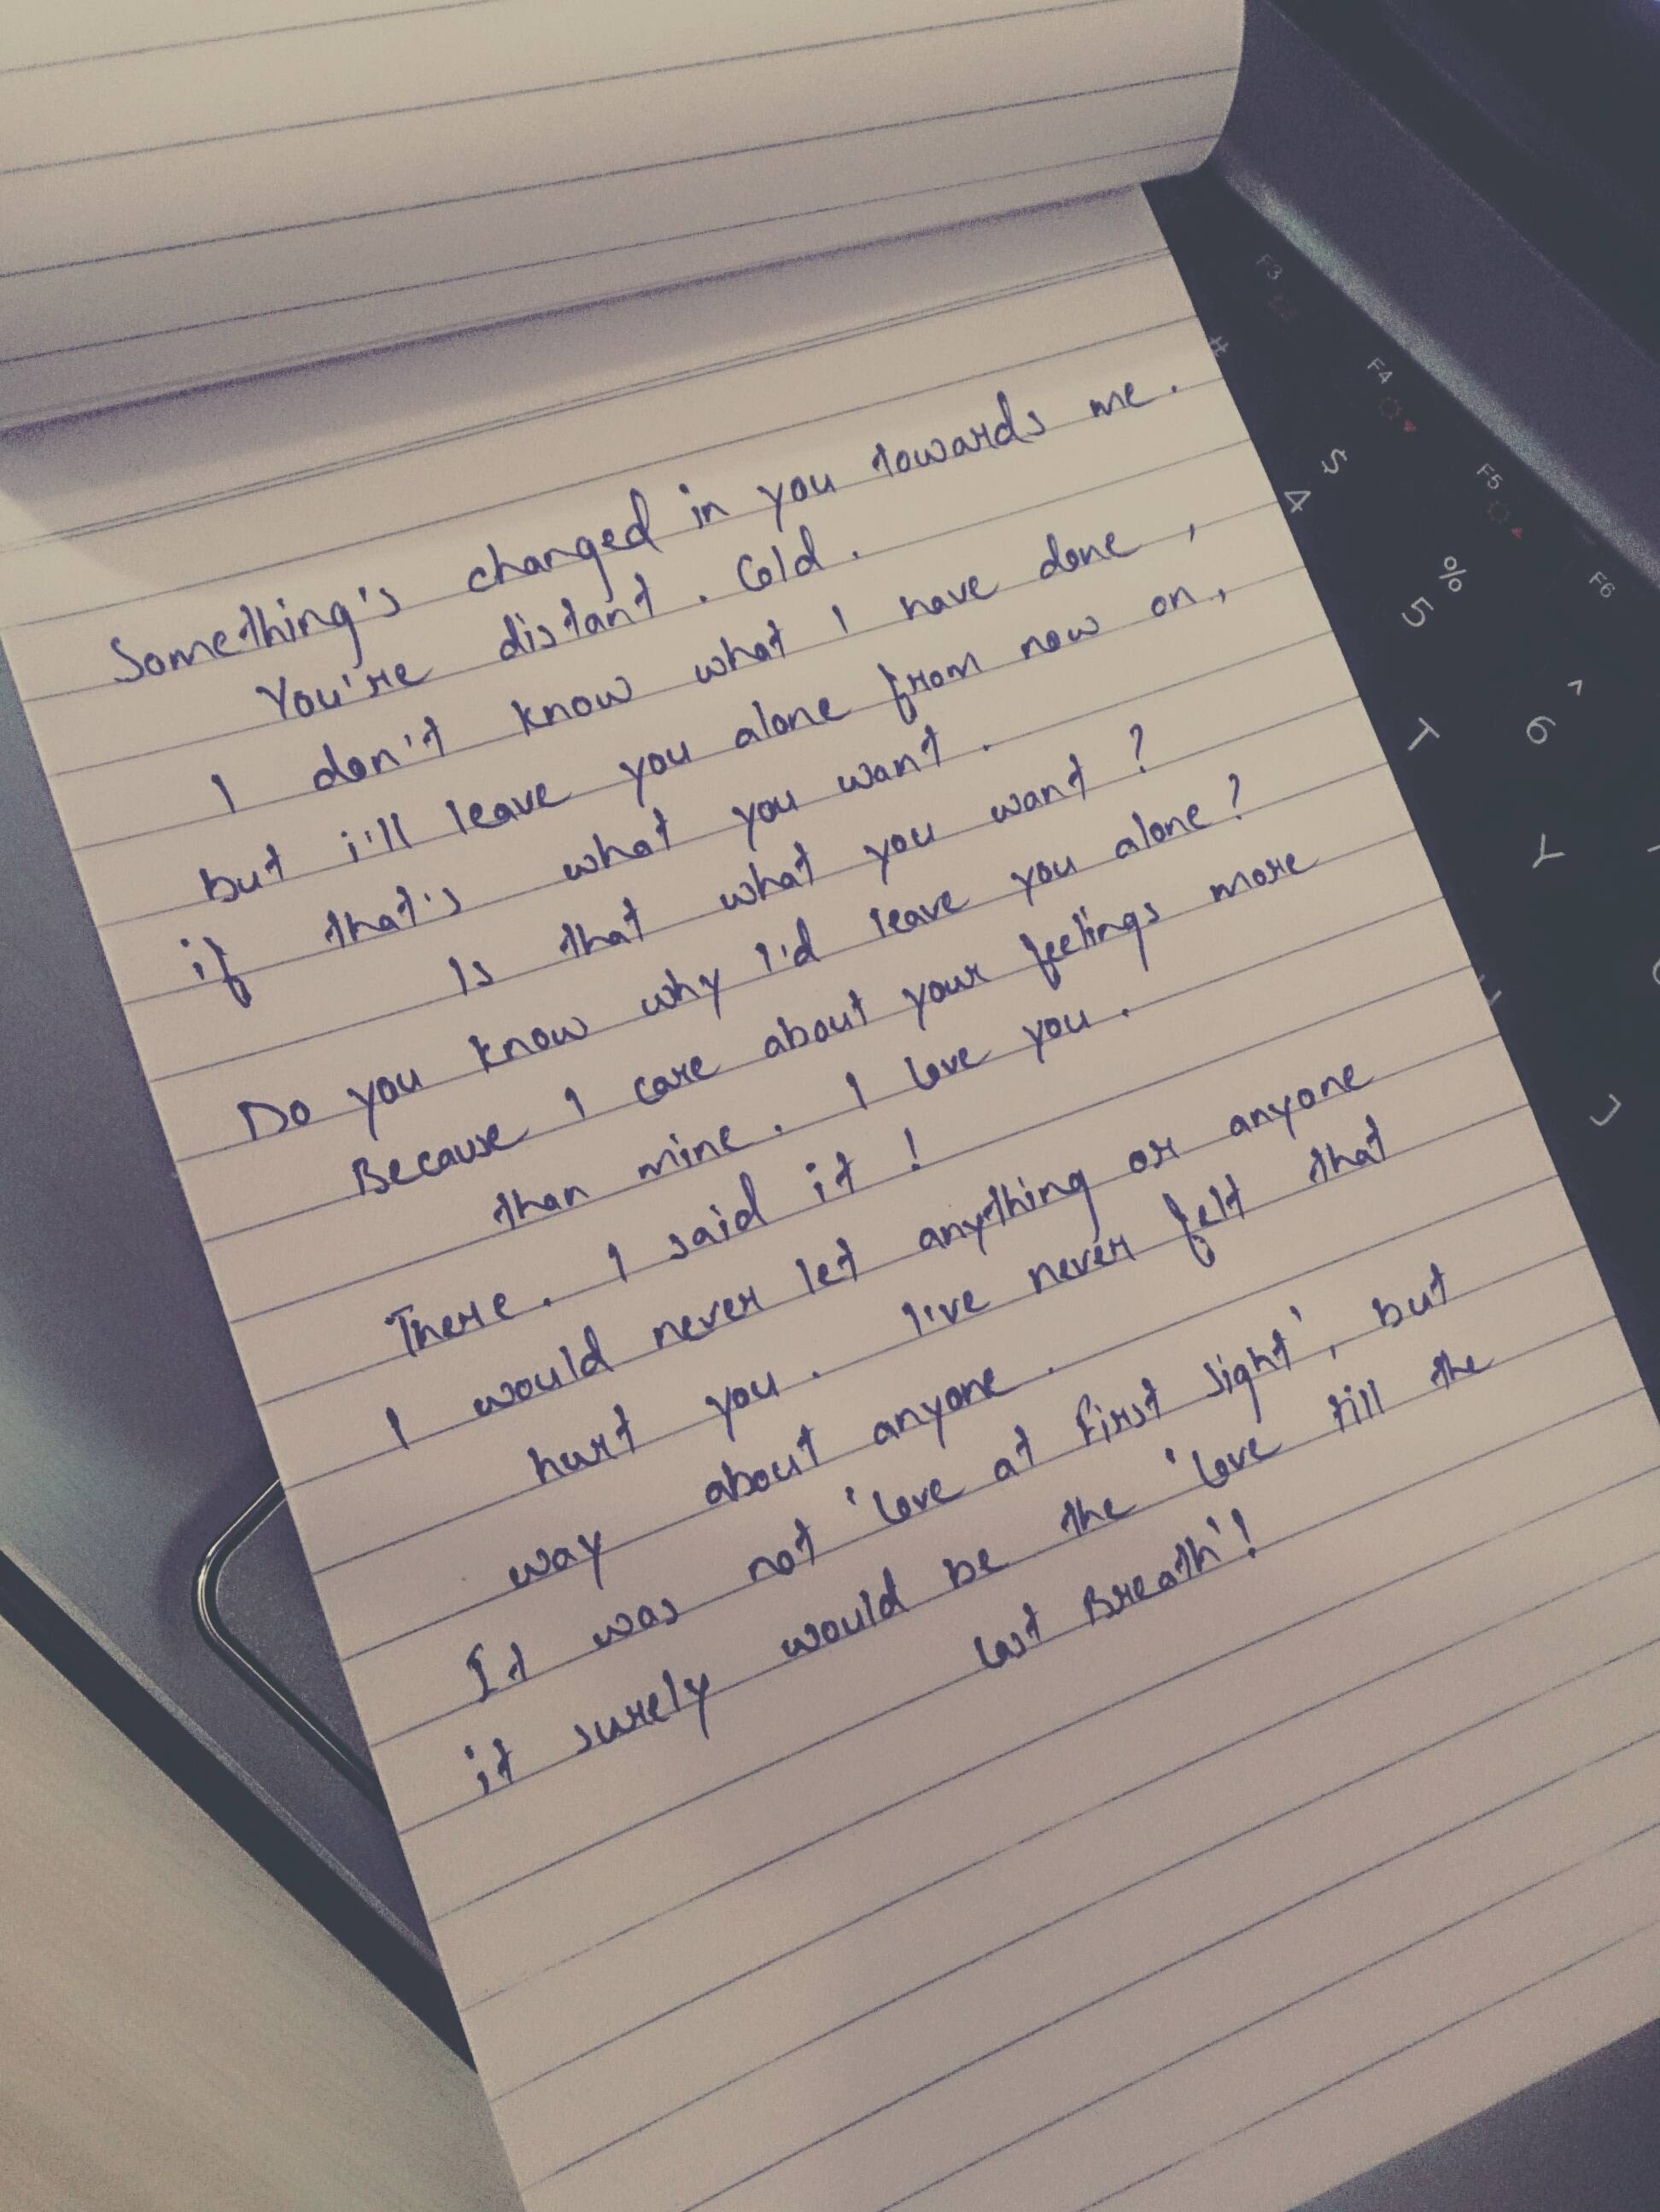 Something's changed in you towards me.
You're distant. Cold.
I don't know what I have done,
but i'll leave you alone from now on,
if that's what you want.
Is that what you want?
Do you know why I'd leave you alone?
Because I care about your feelings more
than mine. I love you.
There. I said it!
I would never let anything or anyone
hurt you. I've never felt that
way about anyone.
It was not 'love at first sight', but
it surely would be the 'love till the
last Breath'!
F3
#
F4
$
4
F5
%
5
F6
^
6
T
Y
J